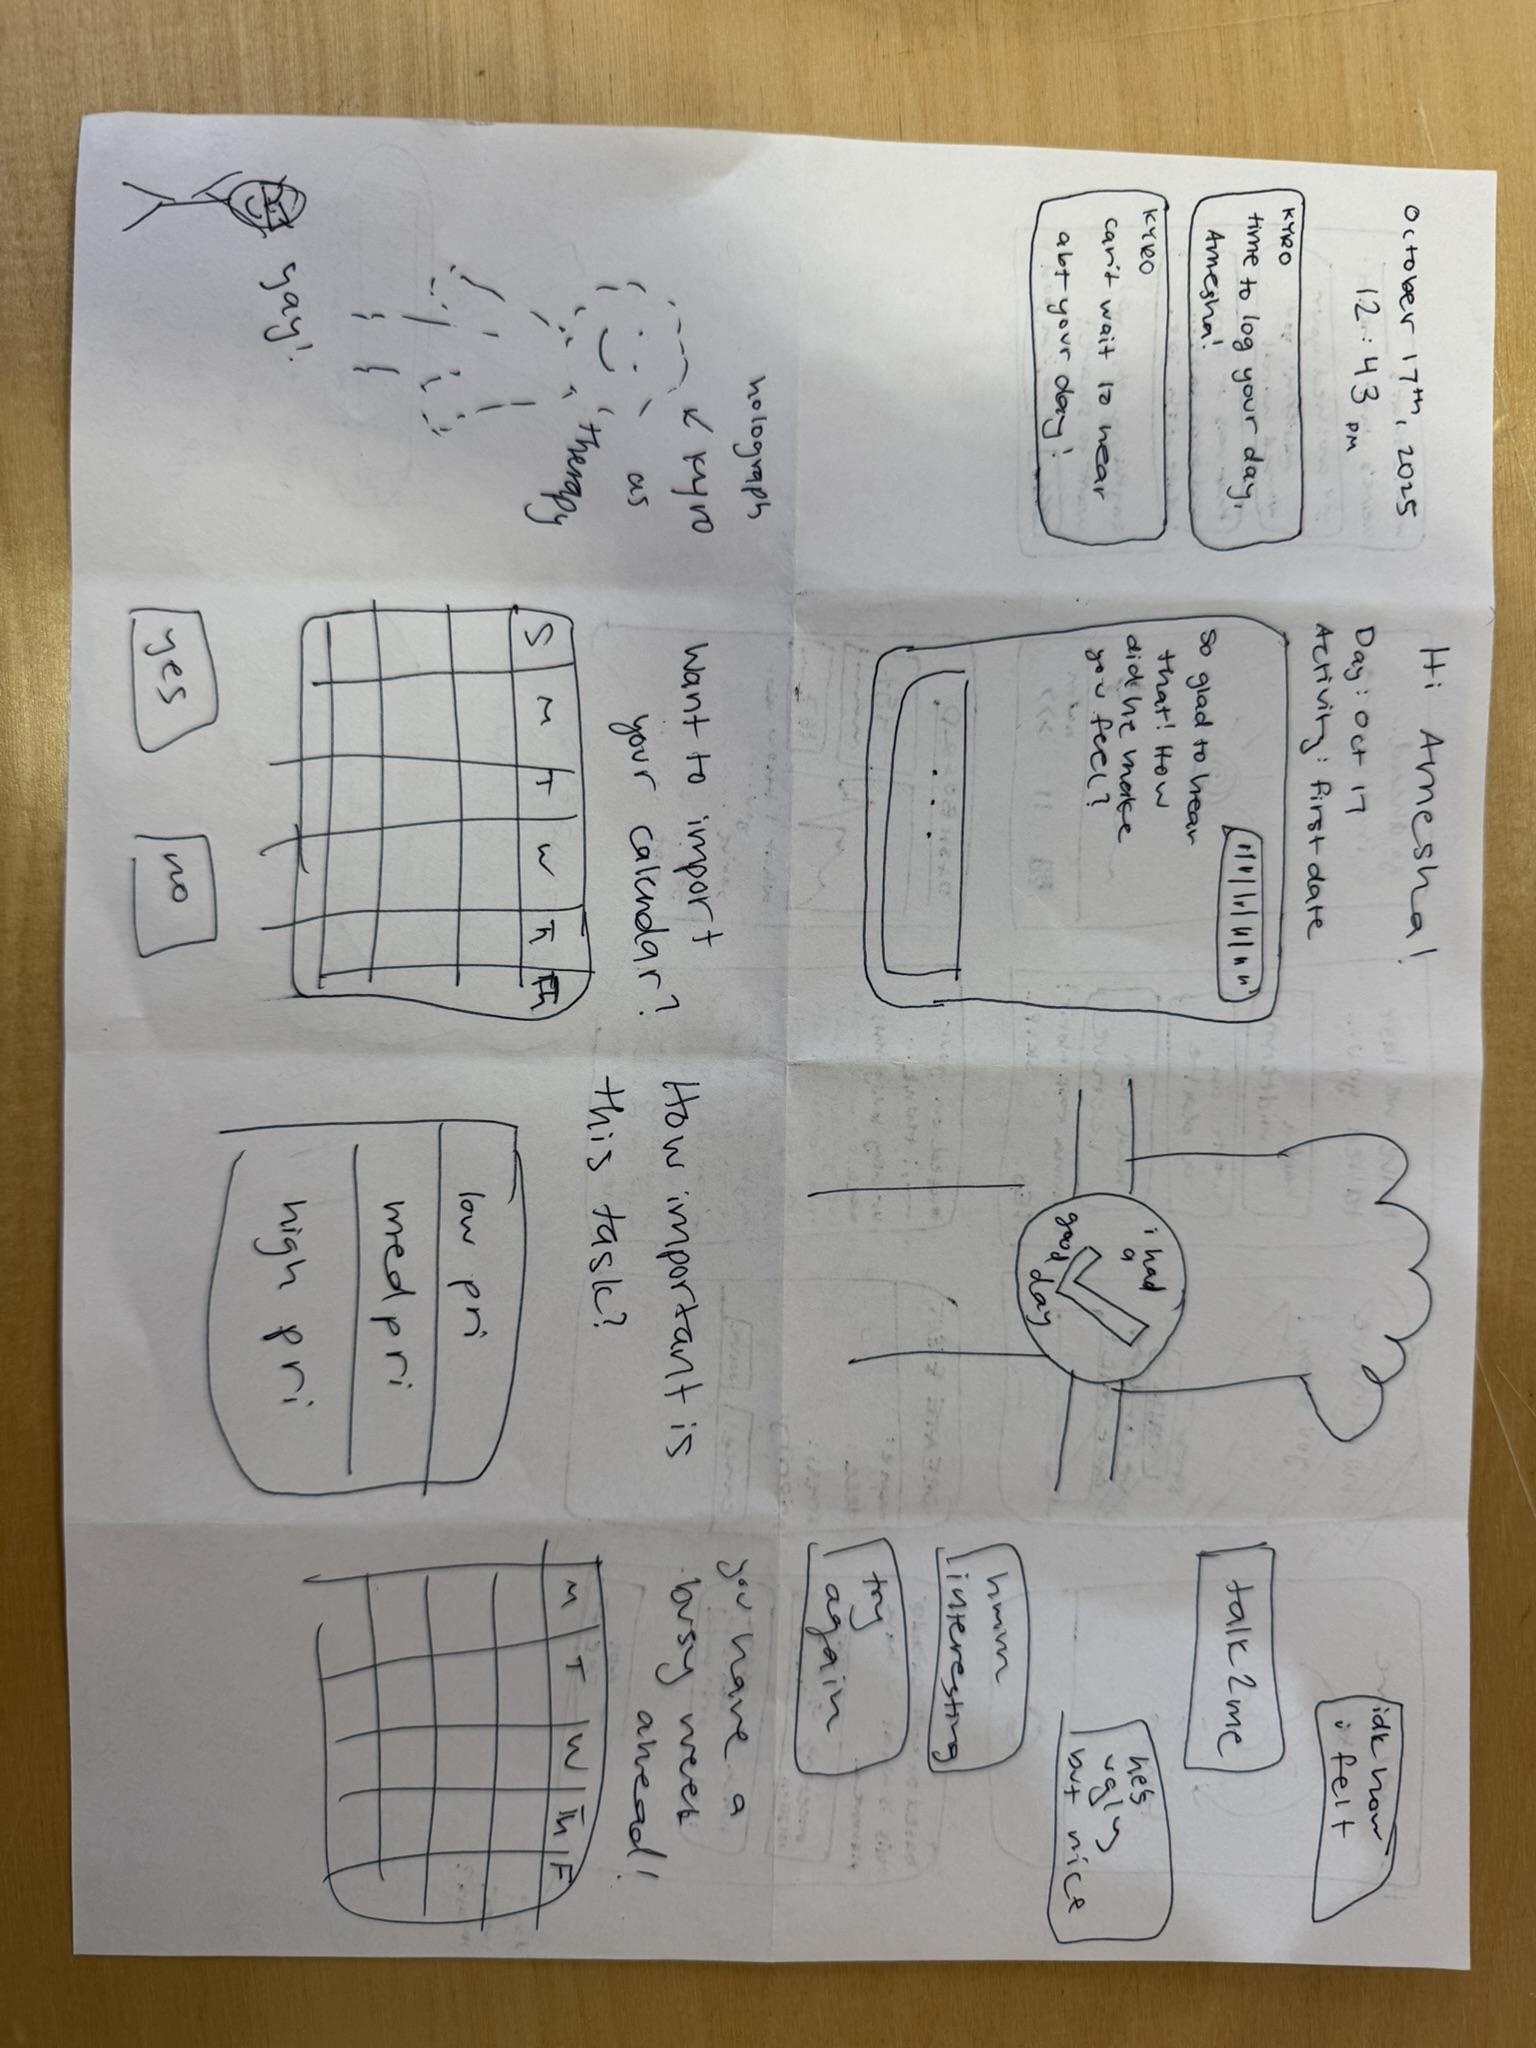 October 17th, 2025
12:43 PM
KYRO
time to log your day,
Amesha!
KYRO
can't wait to hear
abt your day!
Hi Amesha!
Day: Oct 17
Activity: first date
so glad to hear
that! How
did he make
you feel?
...
i had
a
good day
idk how
i felt
talk 2 me
he's
ugly
but nice
hmm
interesting
try
again
holograph
kyro
as
therapy
yay!
Want to import
your calendar?
S M T W Th
yes
no
How important is
this task?
low pri
med pri
high pri
you have a
busy week
ahead!
M T W Th F